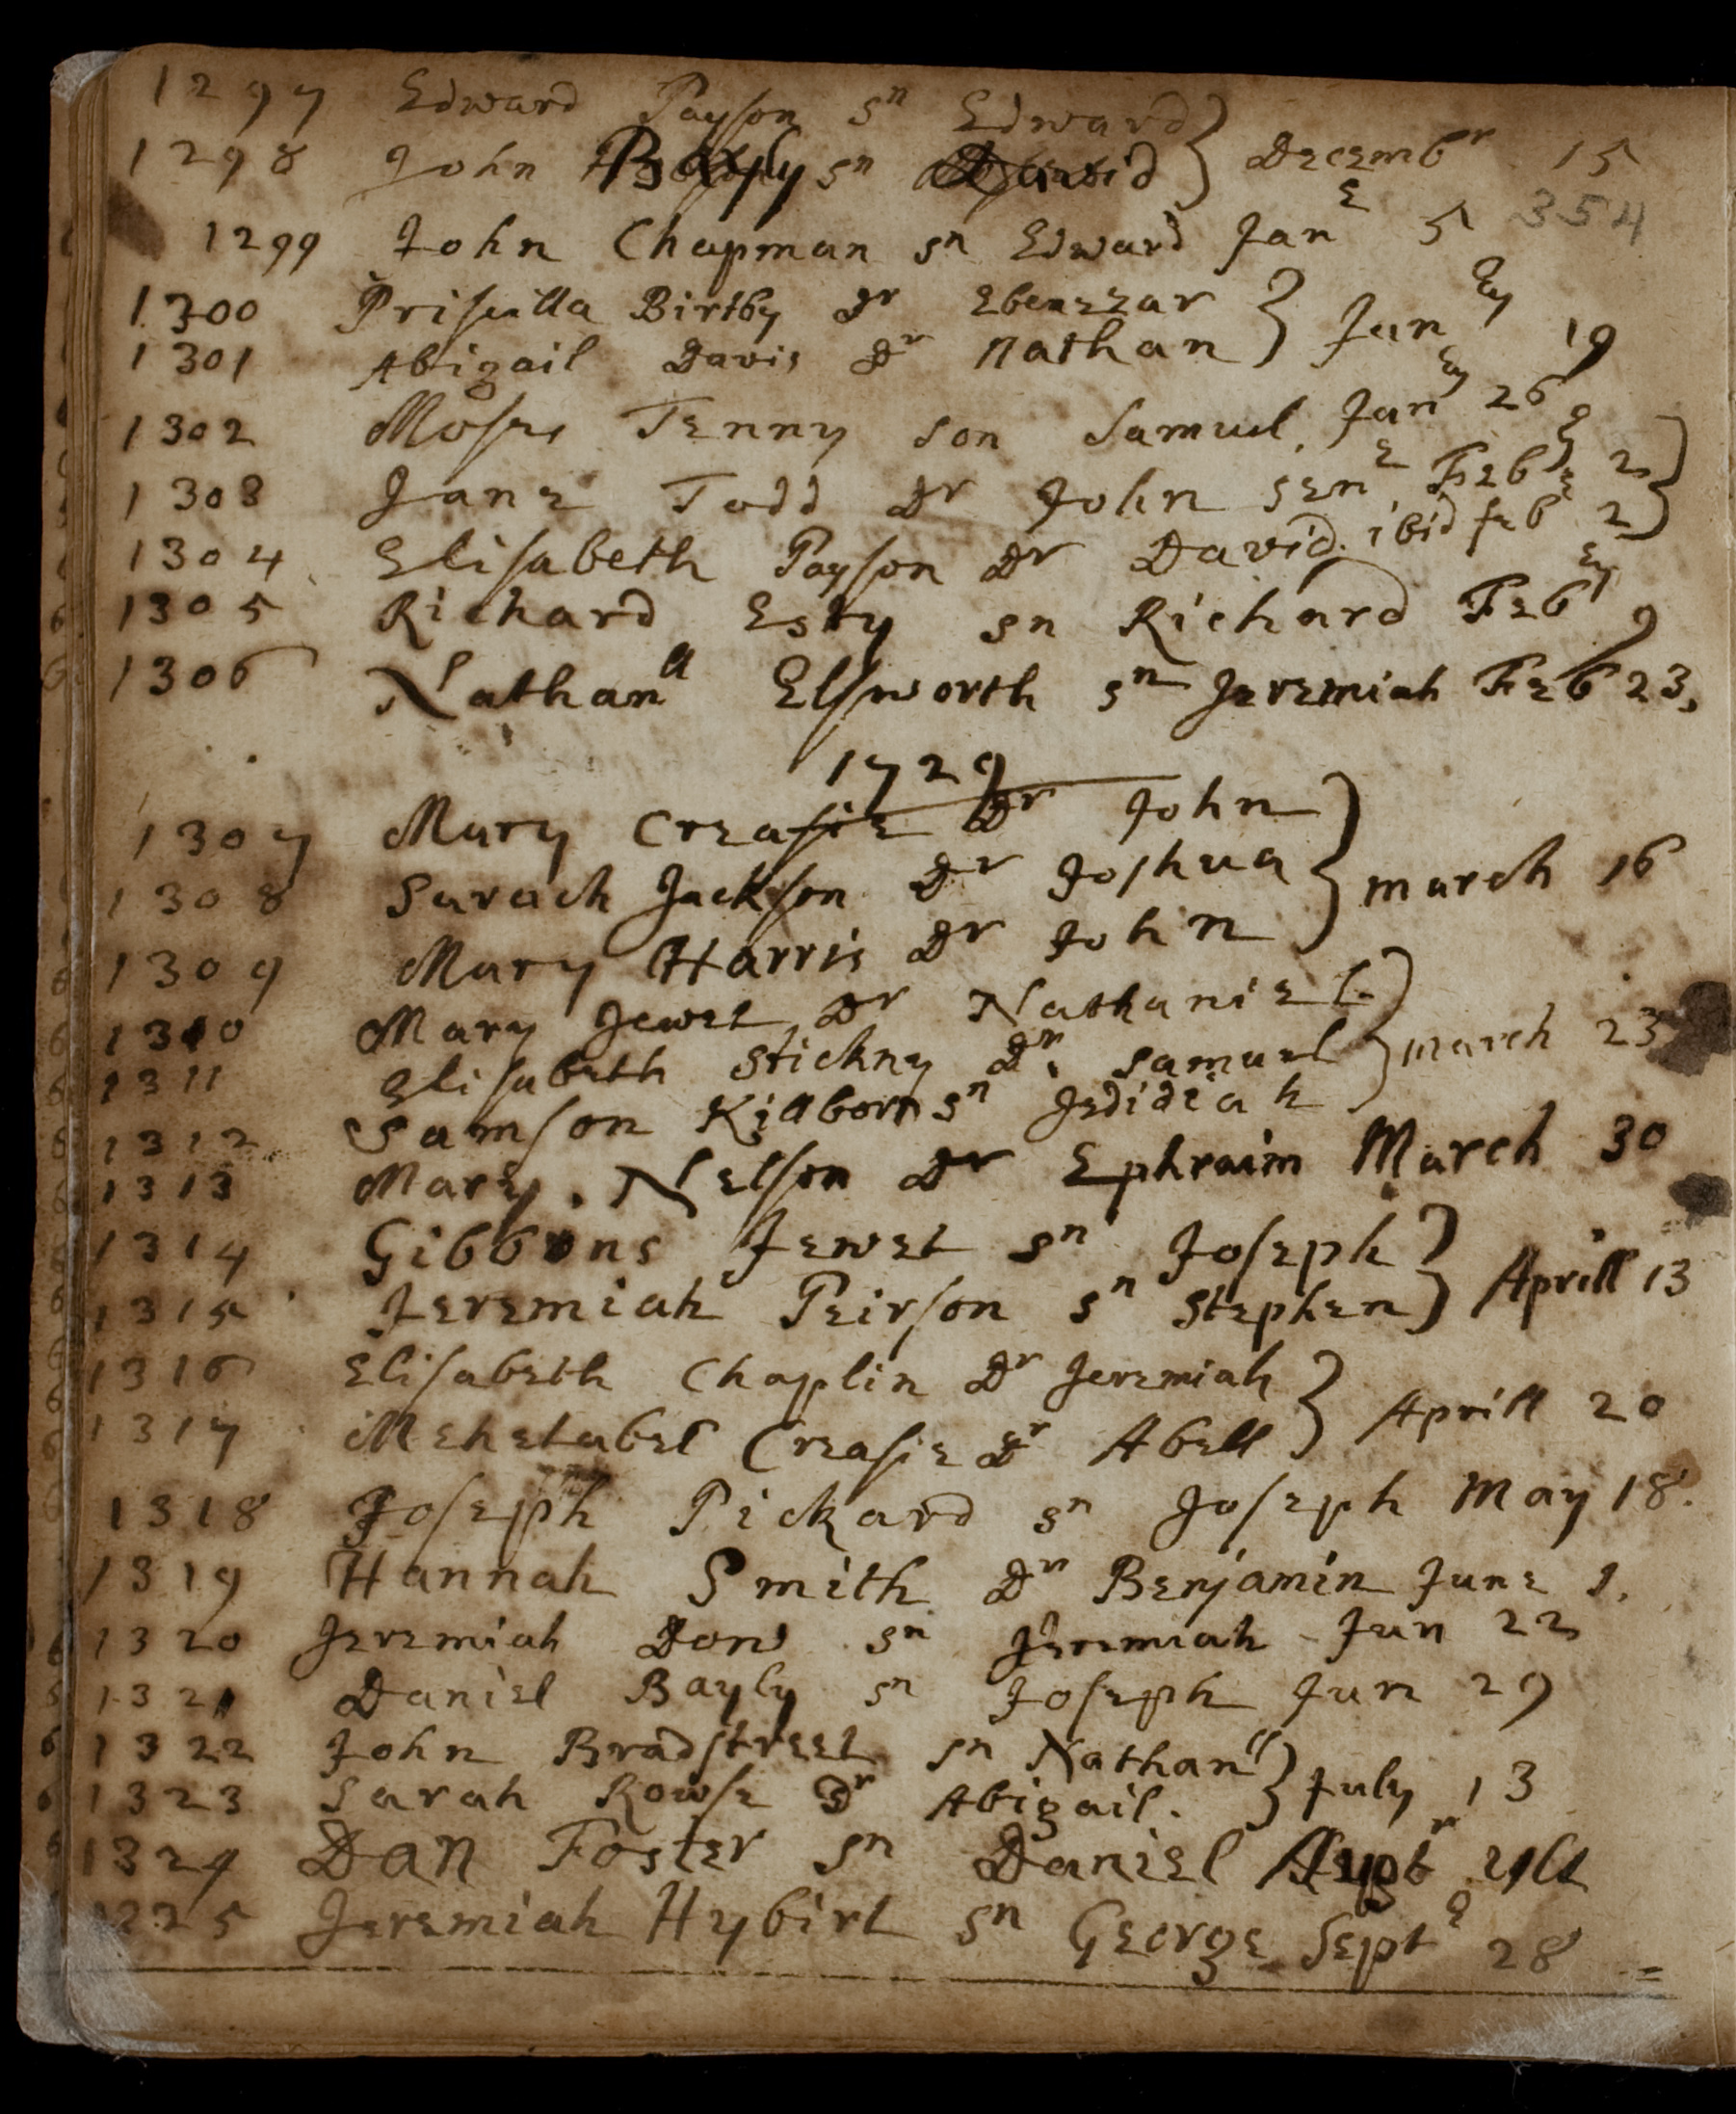 1297 Edward Payson sn Edward }
1298 John Bayly sn David } Decembr 15
354
1299 John Chapman sn Edward Jane 5
1300 Priscilla Birtby Dr Ebenezzar }
1301 Abigail Davis Dr Nathan } Janey 19
1302 Moses Tenny son Samuel. Janey 26
1303 Jane Todd Dr John sene. Febe 2 }
1304 Elisabeth Payson Dr David. ibid febe 2 }
1305 Richard Esty sn Richard Febey 9
1306 Nathanll Elsworth sn Jeremiah Feb 23.
1729
1307 Mary Creasie Dr John }
1308 Sarach Jackson Dr Joshua } march 16
1309 Mary Harris Dr John }
1310 Mary Jewet Dr Nathaniel }
1311 Elisabeth Stickny Dr. Samuel } march 23
1312 Samson Killborn sn Jedidiah }
1313 Marey. Nelson Dr Ephraim March 30
1314 Gibbons Jewet sn Joseph }
1315 Jeremiah Peirson sn Stephen } Aprill 13
1316 Elisabeth Chaplin Dr Jeremiah }
1317 Mehetabel Creasie Dr Abell } Aprill 20
1318 Joseph Pickard sn Joseph May 18.
1319 Hannah Smith Dr Benjamin June 1.
1320 Jeremiah Dow sn Jeremiah Jun 22
1321 Daniel Bayly sn Joseph Jun 29
1322 John Bradstreet sn Nathanll }
1323 Sarah Rowse Dr Abigail. } July 13
1324 Dan Foster sn Daniel
1325 Jeremiah Hybirt sn George Sept 28